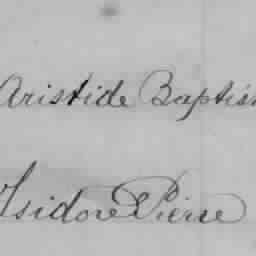 Aristide Baptis
Isidore Pierre